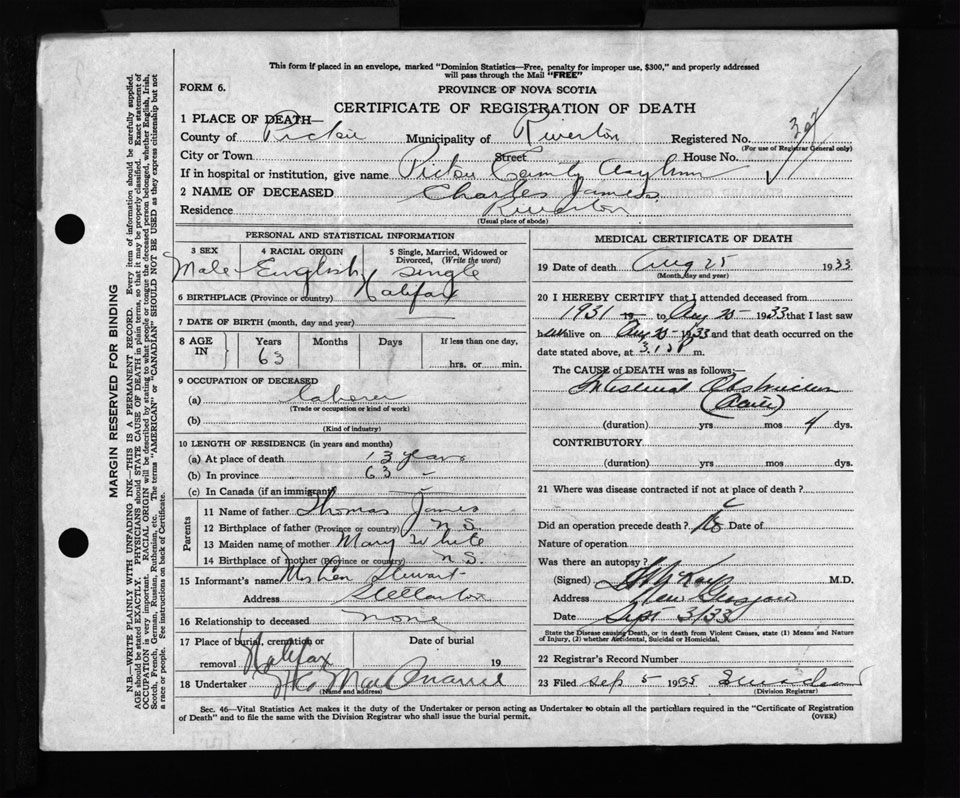 This form if placed in an envelope, marked "Dominion Statistics—Free, penalty for improper use, $300," and properly addressed
will pass through the Mail "FREE"
FORM 6.
PROVINCE OF NOVA SCOTIA
CERTIFICATE OF REGISTRATION OF DEATH
1 PLACE OF DEATH—
County of Pictou Municipality of Riverton Registered No.
(For use of Registrar General only)
City or Town Street House No.
If in hospital or institution, give name Pictou County Asylum
2 NAME OF DECEASED Charles James
Residence Riverton
(Usual place of abode)
PERSONAL AND STATISTICAL INFORMATION
3 SEX 4 RACIAL ORIGIN 5 Single, Married, Widowed or Divorced, (Write the word)
Male English single
6 BIRTHPLACE (Province or country) Halifax
7 DATE OF BIRTH (month, day and year)
8 AGE IN Years Months Days If less than one day,
63 hrs. or min.
9 OCCUPATION OF DECEASED
(a) Laborer
(Trade or occupation or kind of work)
(b)
(Kind of industry)
10 LENGTH OF RESIDENCE (in years and months)
(a) At place of death 13 years
(b) In province 63
(c) In Canada (if an immigrant)
Parents
11 Name of father Thomas James
12 Birthplace of father (Province or country) N.S.
13 Maiden name of mother Mary White
14 Birthplace of mother (Province or country) N.S.
15 Informant's name Stewart
Address Stellarton
16 Relationship to deceased none
17 Place of burial, cremation or removal Halifax Date of burial 19
18 Undertaker
(Name and address)
MEDICAL CERTIFICATE OF DEATH
19 Date of death Aug 25 1933
(Month, day and year)
20 I HEREBY CERTIFY that I attended deceased from
1931 19 to Aug 25 - 1933 that I last saw
h alive on Aug 25 - 1933 and that death occurred on
date stated above, at m.
The CAUSE of DEATH was as follows:—
Intestinal Obstruction
(Acute)
(duration) yrs mos 4 dys.
CONTRIBUTORY
(duration) yrs. mos. dys.
21 Where was disease contracted if not at place of death?
Did an operation precede death? No Date of
Nature of operation
Was there an autopsy?
(Signed) M.D.
Address New Glasgow
Date Sept 3/33
State the Disease causing Death, or in death from Violent Causes, state (1) Means and Nature
of Injury, (2) whether Accidental, Suicidal or Homicidal.
22 Registrar's Record Number
23 Filed Sep 5 19
(Division Registrar)
Sec. 46—Vital Statistics Act makes it the duty of the Undertaker or person acting as Undertaker to obtain all the particulars required in the "Certificate of Registration
of Death" and to file the same with the Division Registrar who shall issue the burial permit.
(OVER)
MARGIN RESERVED FOR BINDING
N.B.—WRITE PLAINLY WITH UNFADING INK—THIS IS A PERMANENT RECORD. Every item of information should be carefully supplied.
AGE should be stated EXACTLY. PHYSICIANS should STATE CAUSE OF DEATH in plain terms, so that it may be properly classified. Exact statement of
OCCUPATION is very important. RACIAL ORIGIN will be described by stating to what people or tongue the deceased person belonged, whether English, Irish,
Scotch, French, German, Russian, Ruthenian, etc. The terms "AMERICAN" or "CANADIAN" SHOULD NOT BE USED as they express citizenship but not
a race or people. See instructions on back of Certificate.